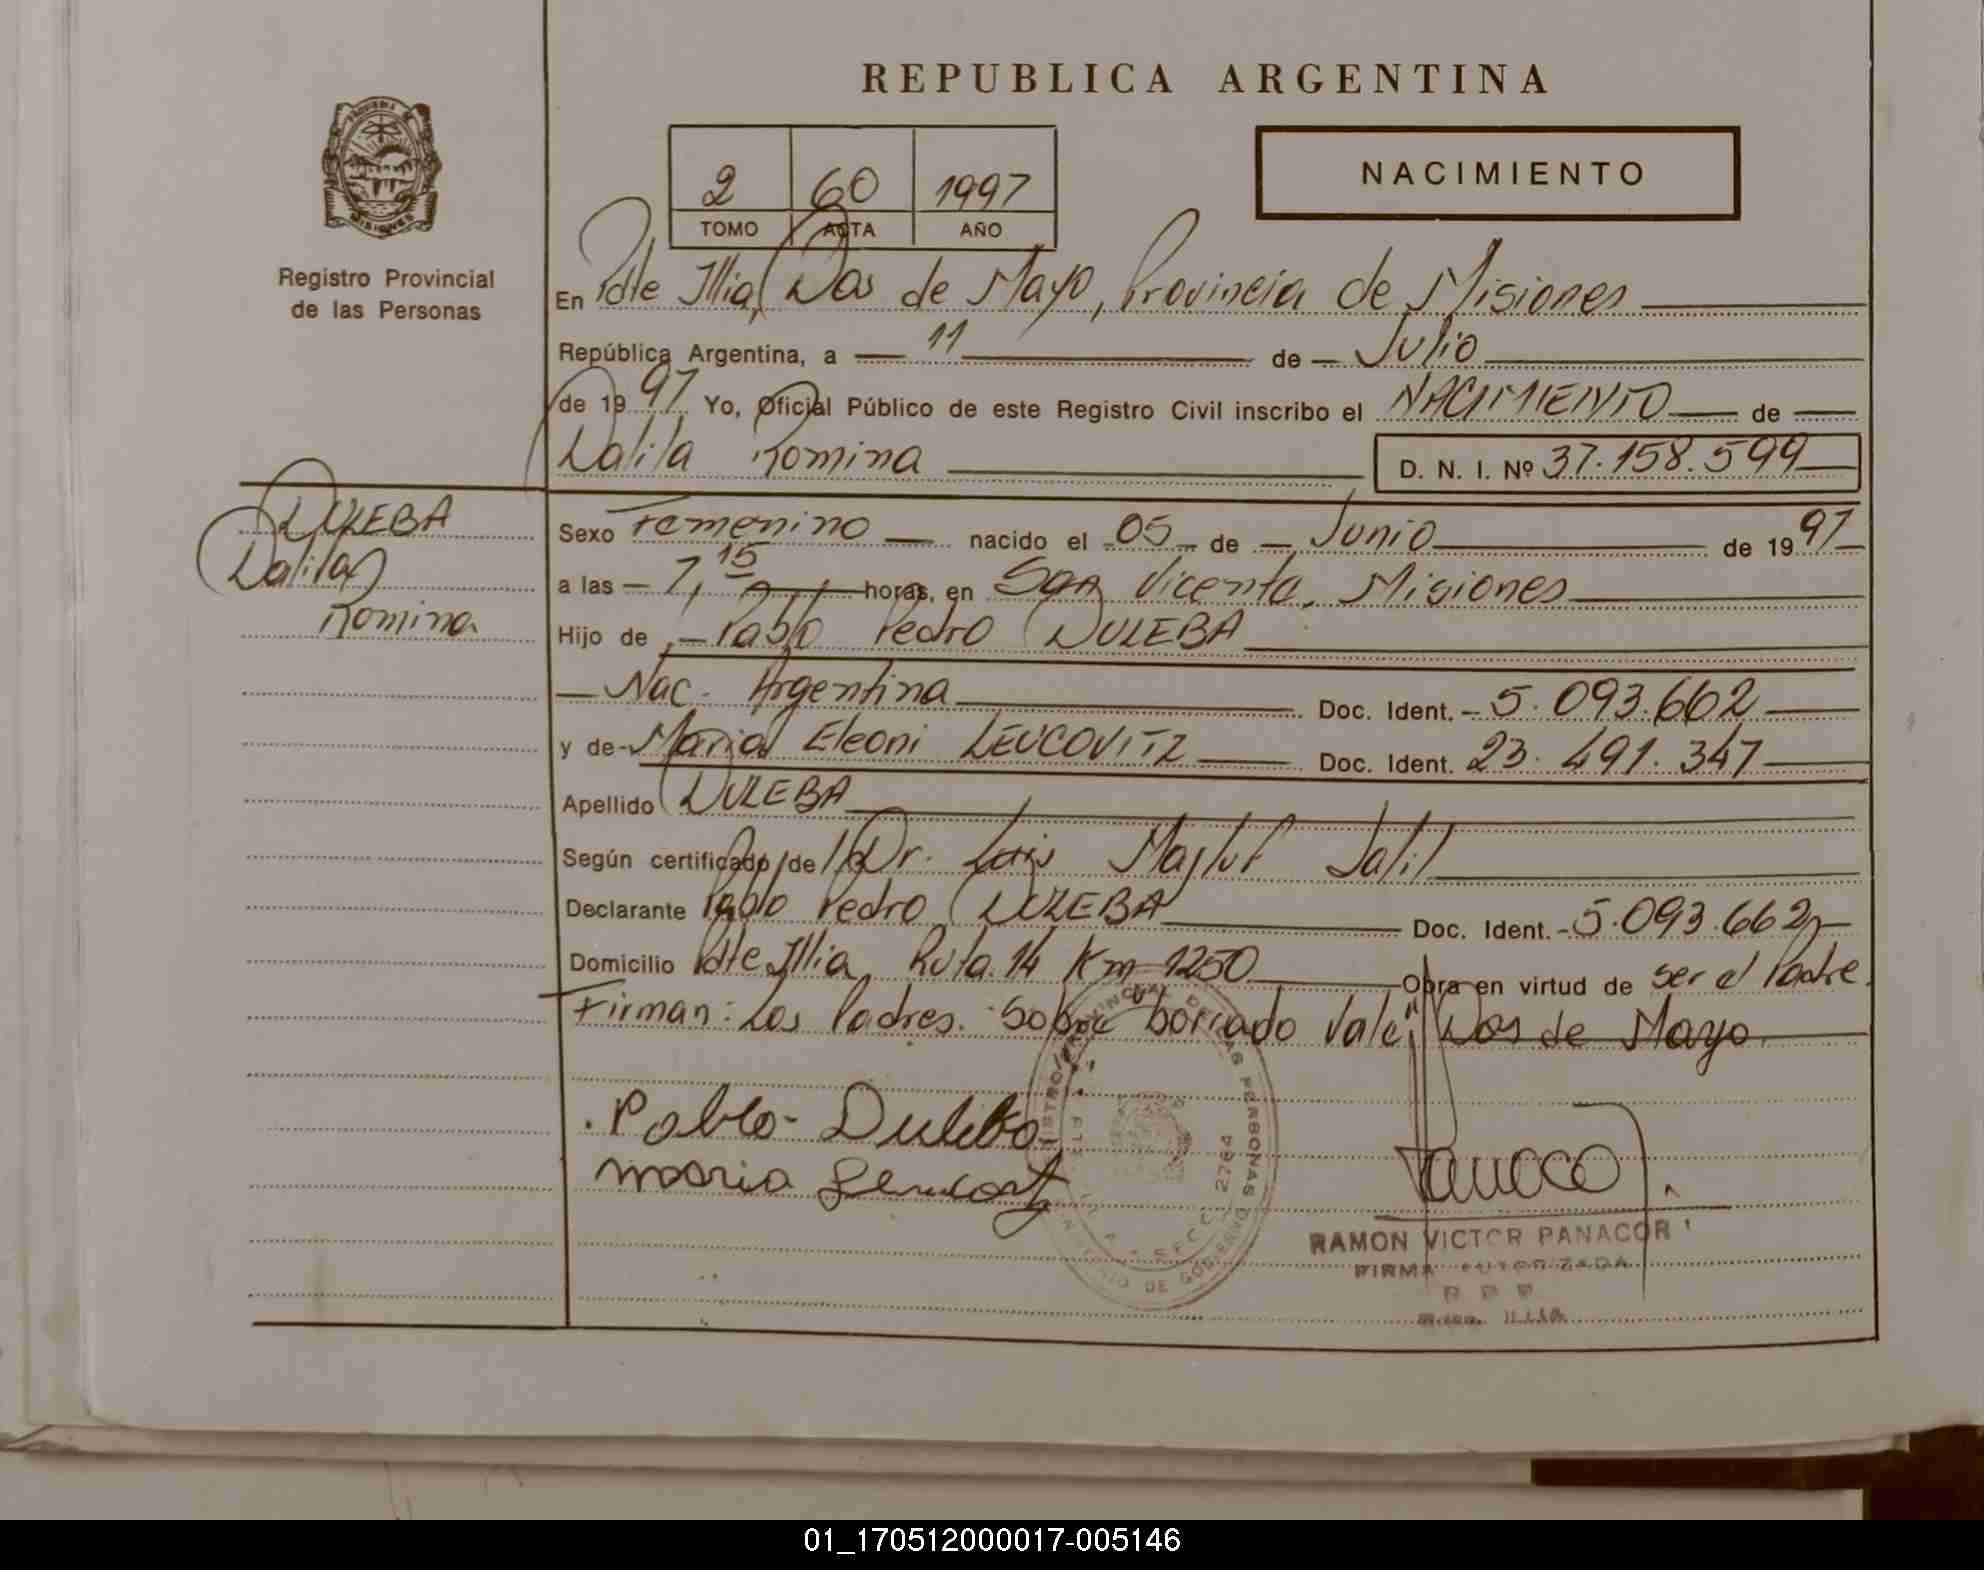 REPUBLICA ARGENTINA
PROVINCIA DE
MISIONES
Registro Provincial
de las Personas
2 60 1997
TOMO ACTA AÑO
NACIMIENTO
En Pdte Illia, Dos de Mayo, Provincia de Misiones
República Argentina, a 11 de Julio
de 1997 Yo, Oficial Público de este Registro Civil inscribo el NACIMIENTO de
Dalila Romina D. N. I. Nº 37.158.599
DULEBA
Dalila
Romina
Sexo Femenino nacido el 05 de Junio de 1997
a las 7,15 horas, en San Vicente, Misiones
Hijo de Pablo Pedro DULEBA
Nac. Argentina Doc. Ident. 5.093.662
y de María Eleoni LEUCOVITZ Doc. Ident. 23.491.347
Apellido DULEBA
Según certificado de Dr. Luis Majluf Jalil
Declarante Pablo Pedro DULEBA Doc. Ident. 5.093.662
Domicilio Pdte Illia, Ruta 14 Km 1250 Obra en virtud de ser el Padre.
Firman: Los Padres. Sobre borrado Vale: "Dos de Mayo
Pablo - Duleba
maria Leucovtz
PROVINCIAL DE LAS PERSONAS
SECC. 2764
DE GOBIERNO
RAMON VICTOR PANACOR
FIRMA AUTORIZADA
01_170512000017-005146